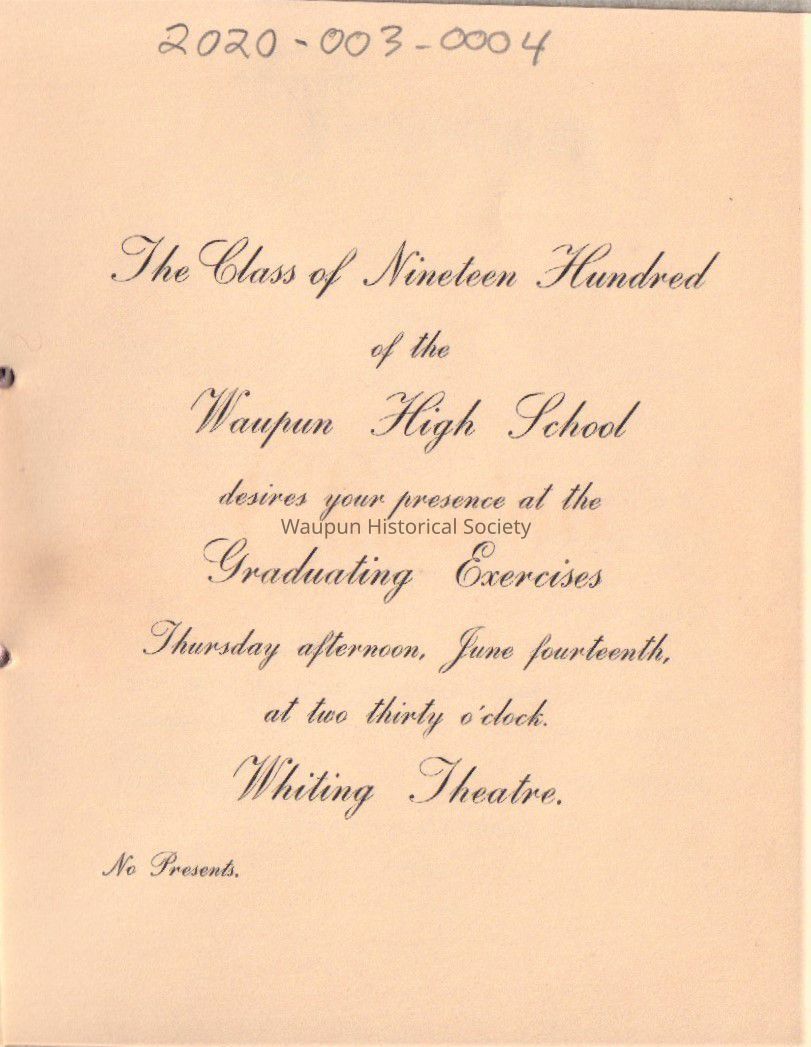 2020-003-0004
The Class of Nineteen Hundred
of the
Waupun High School
desires your presence at the
Waupun Historical Society
Graduating Exercises
Thursday afternoon, June fourteenth,
at two thirty o'clock.
Whiting Theatre.
No Presents.